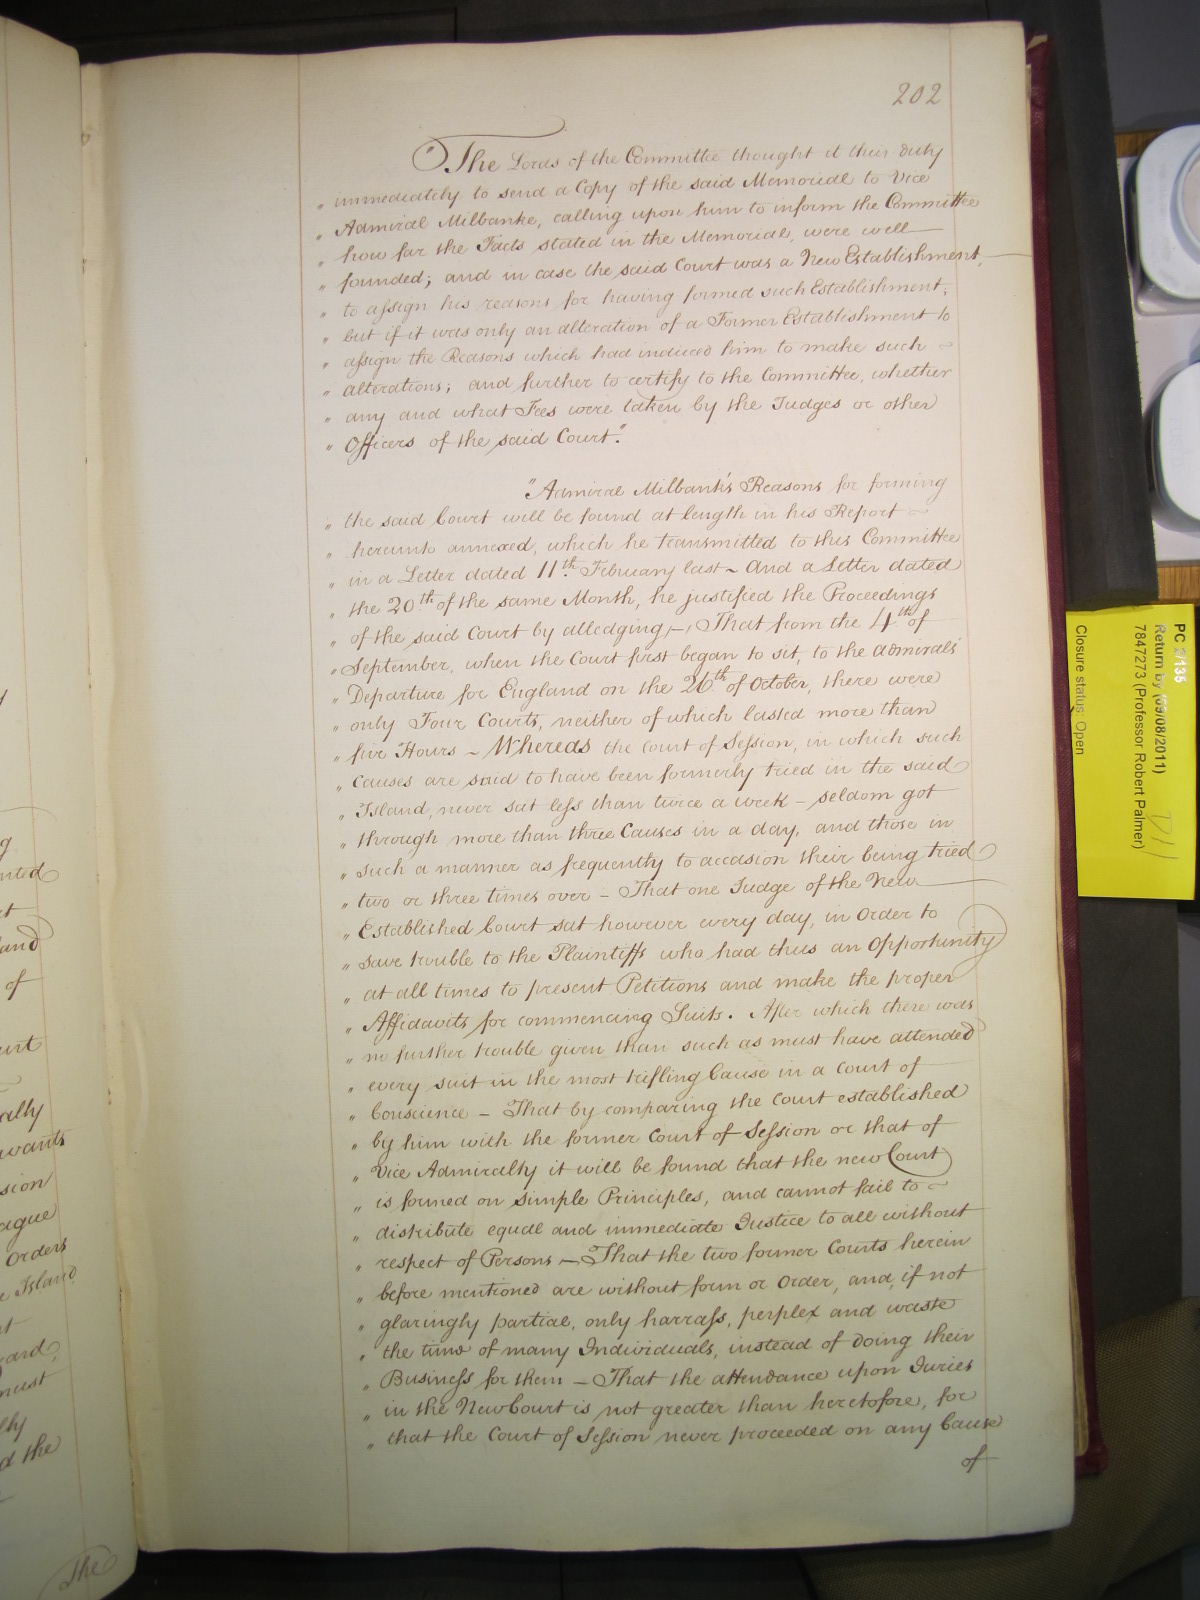 202
"The Lords of the Committee thought it their duty
" immediately to send a Copy of the said Memorial to Vice
" Admiral Milbanke, calling upon him to inform the Committee
" how far the Facts stated in the Memorial, were well
" founded; and in case the said Court was a New Establishment,
" to assign his reasons for having formed such Establishment;
" but if it was only an alteration of a Former Establishment to
" assign the Reasons which had induced him to make such
" alterations; and further to certify to the Committee, whether
" any and what Fees were taken by the Judges or other
" Officers of the said Court."
"Admiral Milbank's Reasons for forming
" the said Court will be found at length in his Report
" hereunto annexed, which he transmitted to this Committee
" in a Letter dated 11th. February last ~ And a Letter dated
" the 20th of the same Month, he justified the Proceedings
" of the said Court by alledging,—, That from the 4th of
" September, when the Court first began to sit, to the admirals'
" Departure for England on the 26th of October, there were
" only Four Courts, neither of which lasted more than
" five Hours ~ Whereas the Court of Session, in which such
" Causes are said to have been formerly tried in the said
" Island, never sat less than twice a week – seldom got
" through more than three Causes in a day, and those in
" such a manner as frequently to occasion their being tried
" two or three times over – That one Judge of the New
" Established Court sat however every day, in Order to
" save trouble to the Plaintiffs who had thus an Opportunity
" at all times to present Petitions and make the proper
" Affidavits for commencing Suits. After which there was
" no further trouble given than such as must have attended
" every suit in the most trifling Cause in a Court of
" Conscience – That by comparing the Court established
" by him with the former Court of Session or that of
" Vice Admiralty it will be found that the new Court
" is formed on simple Principles, and cannot fail to
" distribute equal and immediate Justice to all without
" respect of Persons —, That the two former Courts herein
" before mentioned are without form or Order, and, if not
" glaringly partial, only harrass, perplex and waste
" the time of many Individuals, instead of doing their
" Business for them – That the attendance upon Juries
" in the New Court is not greater than heretofore, for
" that the Court of Session never proceeded on any Cause
of
ally
wants
sion
ague
Orders
Island
must
d the
The
PC 2/135
Return by (09/08/2011)
7847273 (Professor Robert Palmer)
Closure status: Open
D11